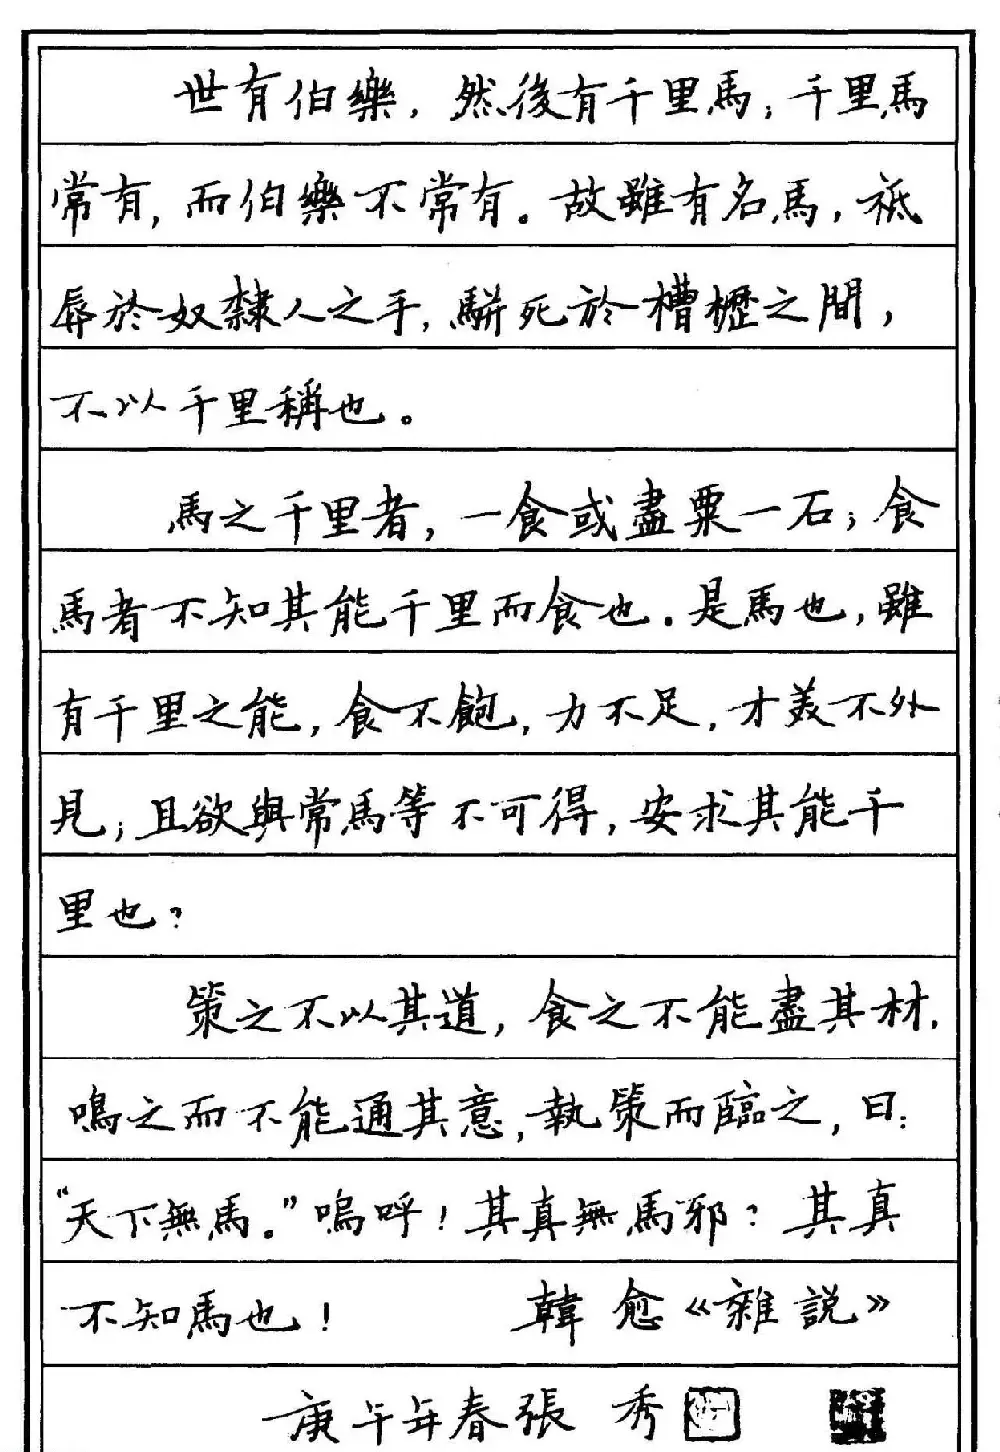 世有伯樂，然後有千里馬；千里馬
常有，而伯樂不常有。故雖有名馬，祗
辱於奴隸人之手，駢死於槽櫪之間，
不以千里稱也。
馬之千里者，一食或盡粟一石；食
馬者不知其能千里而食也。是馬也，雖
有千里之能，食不飽，力不足，才美不外
見；且欲與常馬等不可得，安求其能千
里也？
策之不以其道，食之不能盡其材，
鳴之而不能通其意，執策而臨之，曰：
“天下無馬。”嗚呼！其真無馬邪？其真
不知馬也！ 韓愈《雜説》
庚午年春張秀